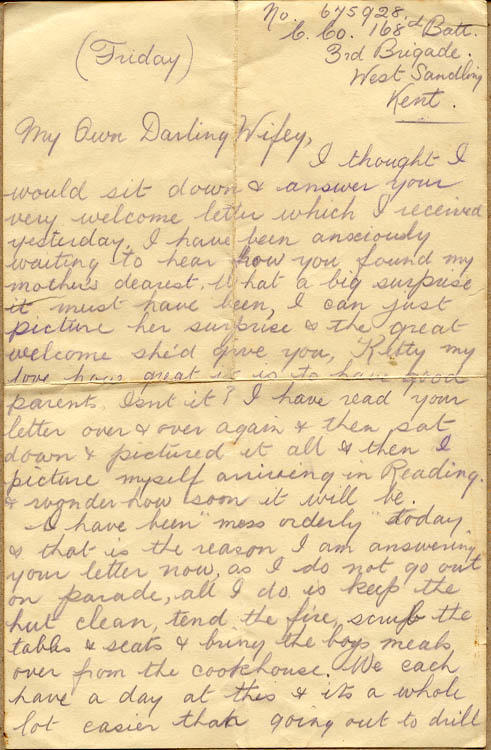 No. 675928.
C. Co. 168th Batt.
3rd Brigade.
West Sandling
Kent.
(Friday)
My Own Darling Wifey,
I thought I
would sit down & answer your
very welcome letter which I received
yesterday. I have been ansciously
waiting to hear how you found my
mothers dearest. What a big surprise
it must have been, I can just
picture her surprise & the great
welcome she'd give you, Ketty my
love how great it is to have good
parents. Isnt it? I have read your
letter over & over again & then sat
down & pictured it all & then I
picture myself arriving in Reading.
& wonder how soon it will be.
I have been "mess orderly" today
& that is the reason I am answering
your letter now, as I do not go out
on parade, all I do is keep the
hut clean, tend the fire, scrub the
tables & seats & bring the boys meals
over from the cookhouse. We each
have a day at this & its a whole
lot easier than going out to drill